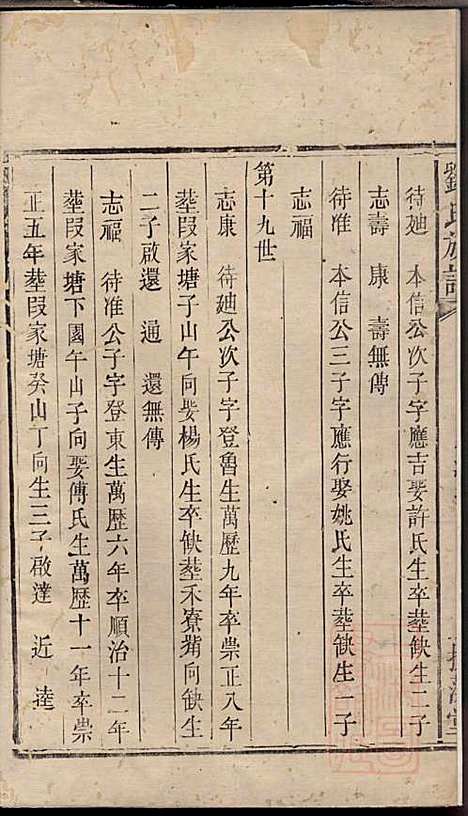 劉氏族譜
待廸 本信公次子字應吉娶許氏生卒塟缺生二子
志壽 康 壽無傳
待准 本信公三子字應行娶姚氏生卒塟缺生一子
志福
第十九世
志康 待廸公次子字登魯生萬歷九年卒崇正八年
塟段家塘子山午向娶楊氏生卒缺塟禾寮觜向缺生
二子啟還 通 還無傳
志福 待准公子字登東生萬歷六年卒順治十二年
塟段家塘下園午山子向娶傅氏生萬歷十一年卒崇
正五年塟段家塘癸山丁向生三子啟達 近 逵